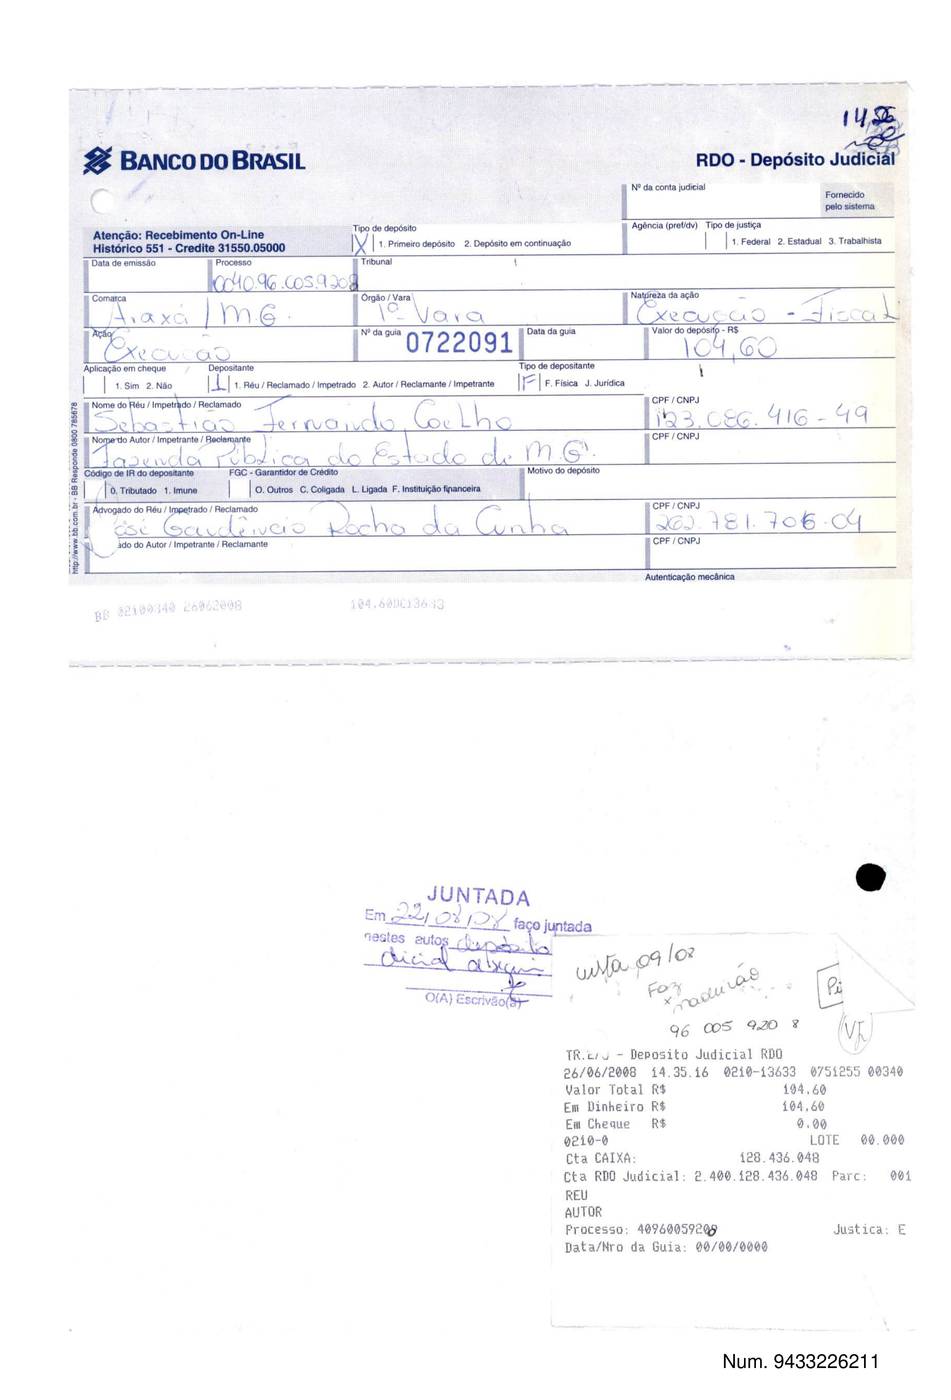 BANCO DO BRASIL
RDO - Depósito Judicial
Nº da conta judicial
Fornecido
pelo sistema
Atenção: Recebimento On-Line
Histórico 551 - Credite 31550.05000
Tipo de depósito
X 1. Primeiro depósito 2. Depósito em continuação
Agência (pref/dv) Tipo de justiça
1. Federal 2. Estadual 3. Trabalhista
Data de emissão Processo Tribunal
0040.96.005.9208
Comarca Órgão / Vara Natureza da ação
Araxá / M.G. 1ª Vara Execução - Fiscal
Ação Nº da guia 0722091 Data da guia Valor do depósito - R$
Execução 104,60
Aplicação em cheque Depositante Tipo de depositante
1. Sim 2. Não 1 1. Réu / Reclamado / Impetrado 2. Autor / Reclamante / Impetrante F F. Física J. Jurídica
Nome do Réu / Impetrado / Reclamado CPF / CNPJ
Sebastião Fernando Coelho 123.086.416-49
Nome do Autor / Impetrante / Reclamante CPF / CNPJ
Fazenda Pública do Estado de M.G.
Código de IR do depositante FGC - Garantidor de Crédito Motivo do depósito
0. Tributado 1. Imune O. Outros C. Coligada L. Ligada F. Instituição financeira
Advogado do Réu / Impetrado / Reclamado CPF / CNPJ
José Gaudêncio Rocha da Cunha 262.781.706-04
ado do Autor / Impetrante / Reclamante CPF / CNPJ
Autenticação mecânica
http://www.bb.com.br - BB Responde 0800 785678
BB 02100340 26062008 104.60DC13633
JUNTADA
Em 22/08/08 faço juntada
nestes autos depósito
dicial
O(A) Escrivão(a)
09/08
Faz
96 005 920 8
- Deposito Judicial RDO
26/06/2008 14.35.16 0210-13633 0751255 00340
Valor Total R$ 104.60
Em Dinheiro R$ 104.60
Em Cheque R$ 0.00
0210-0 LOTE 00.000
Cta CAIXA: 128.436.048
Cta RDO Judicial: 2.400.128.436.048 Parc: 001
REU
AUTOR
Processo: 40960059208 Justica: E
Data/Nro da Guia: 00/00/0000
Num. 9433226211